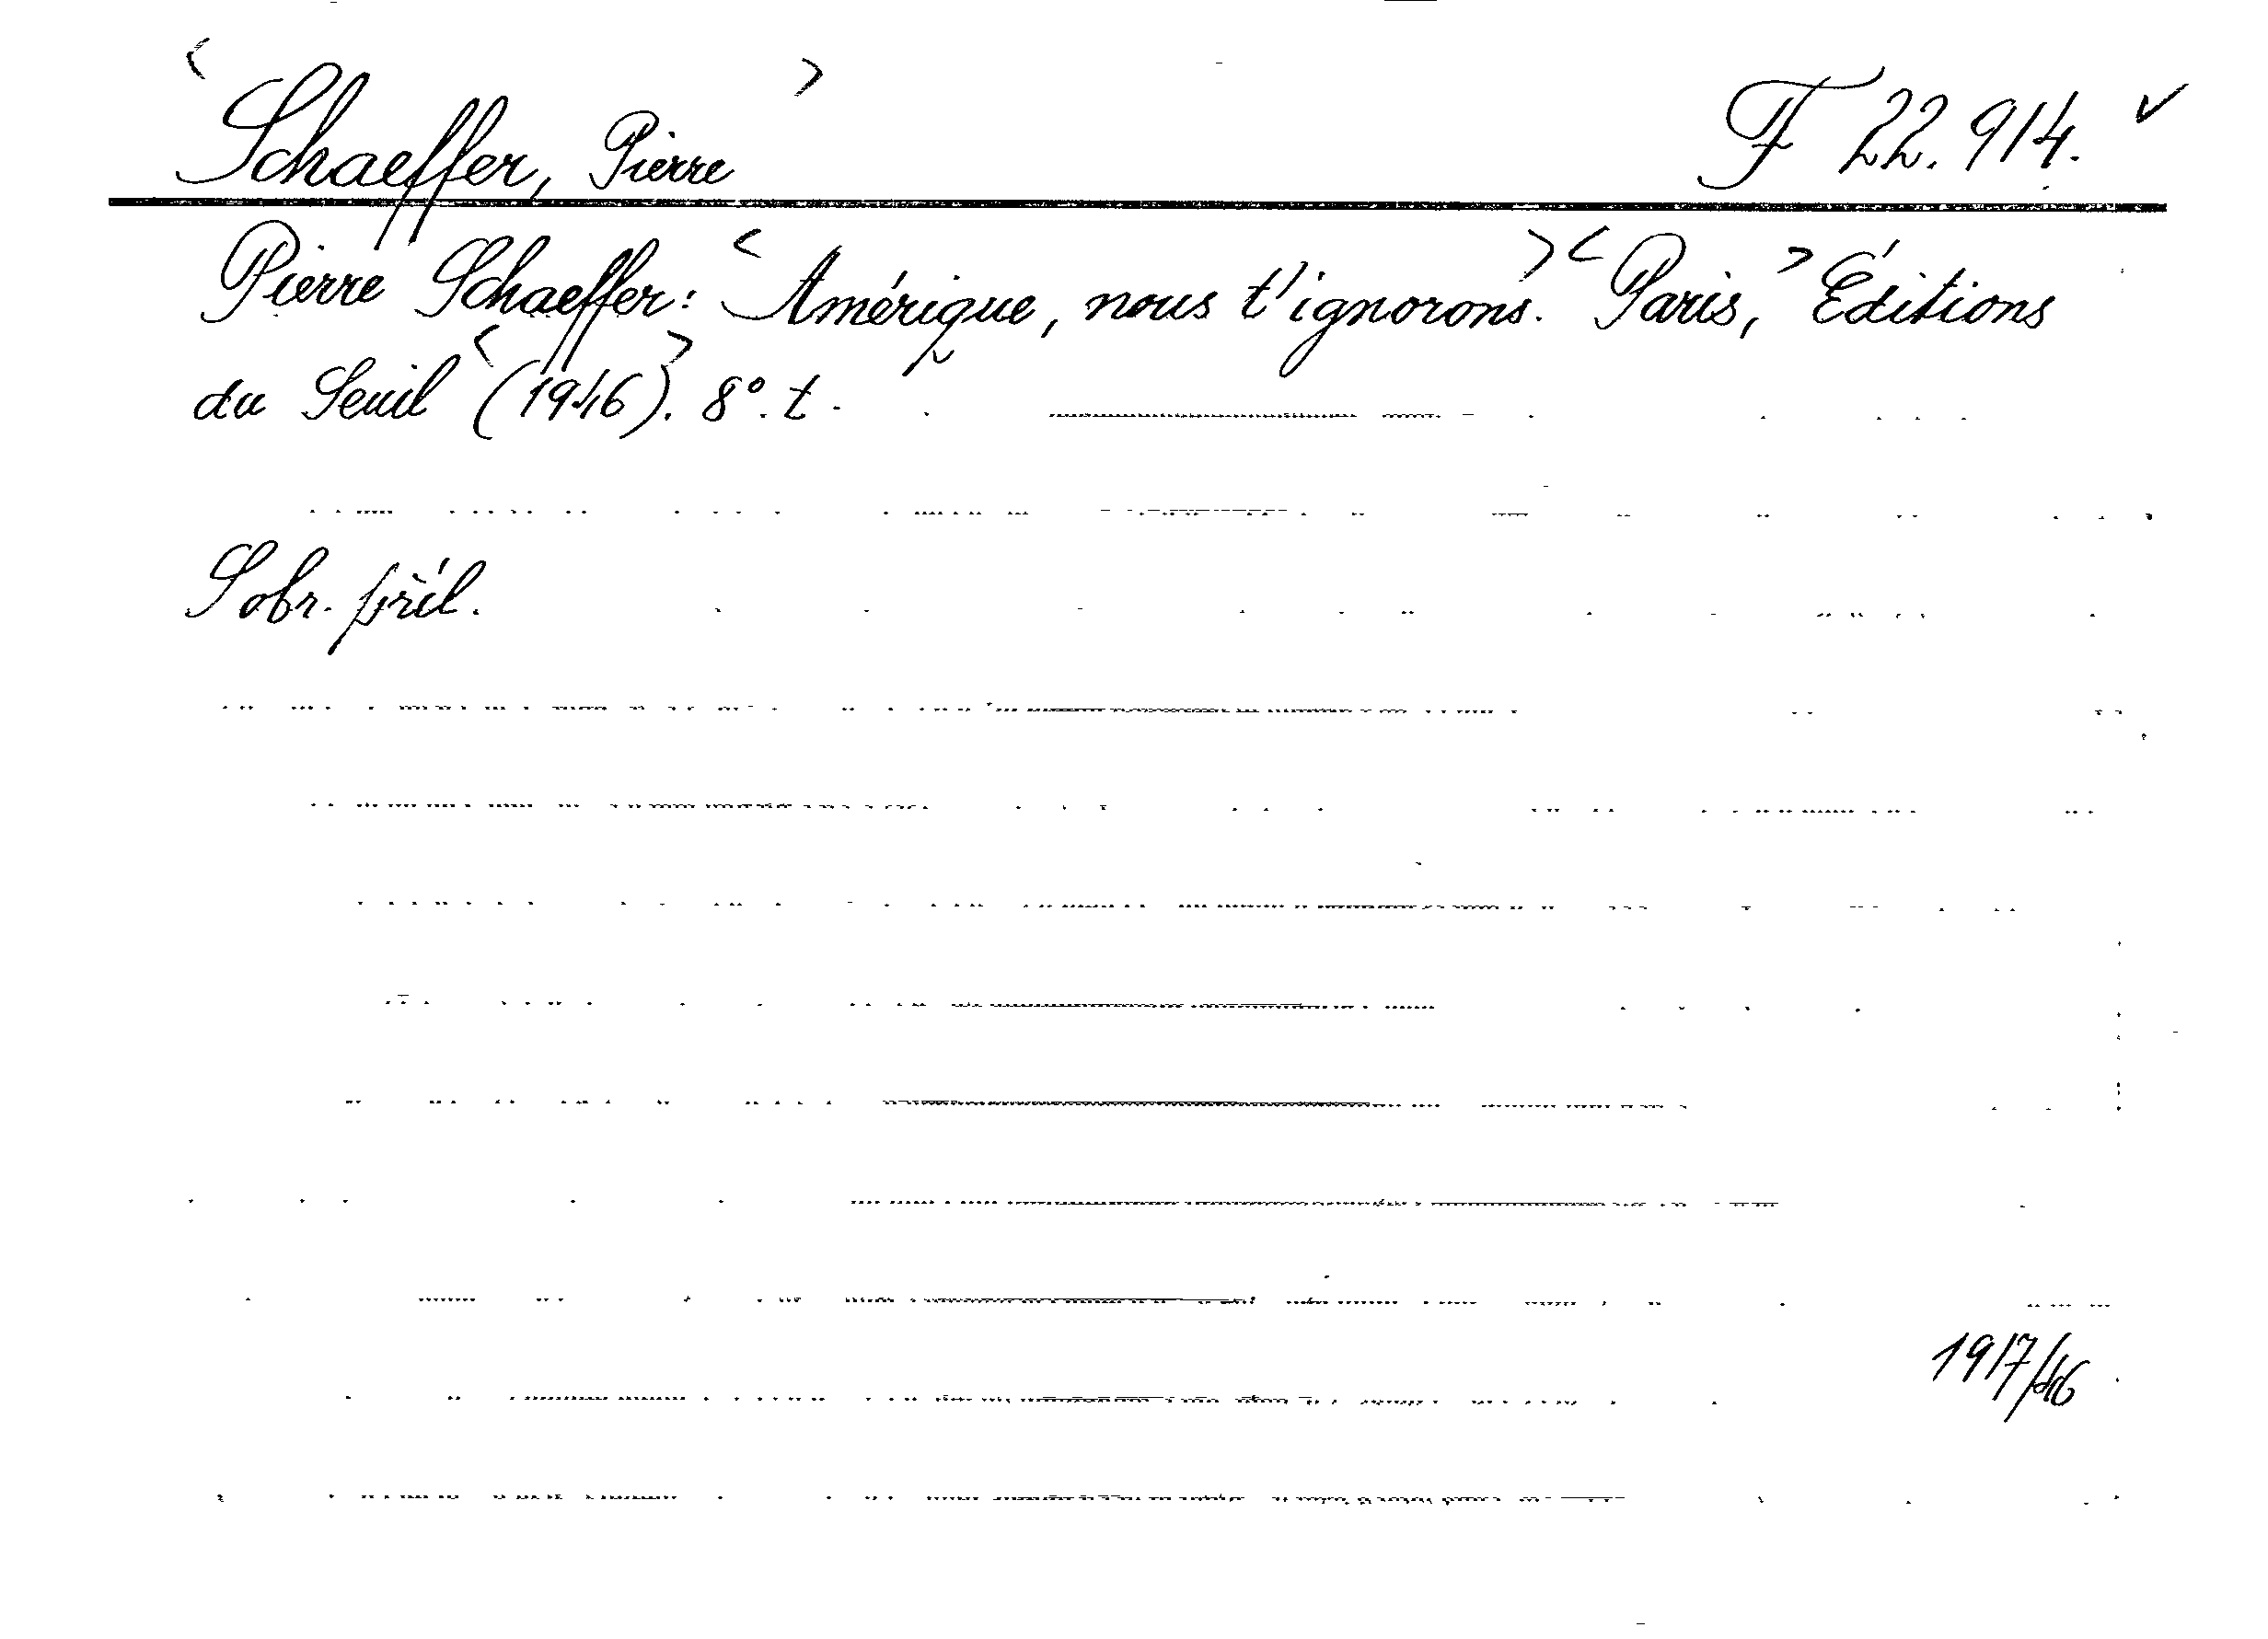 <Schaeffer, Pierre> F 22.914. ✓
Pierre Schaeffer: <Amérique, nous t'ignorons.> <Paris,> Éditions
du Seuil <(1946)>. 8°. t.
S obr. příl.
1917/46